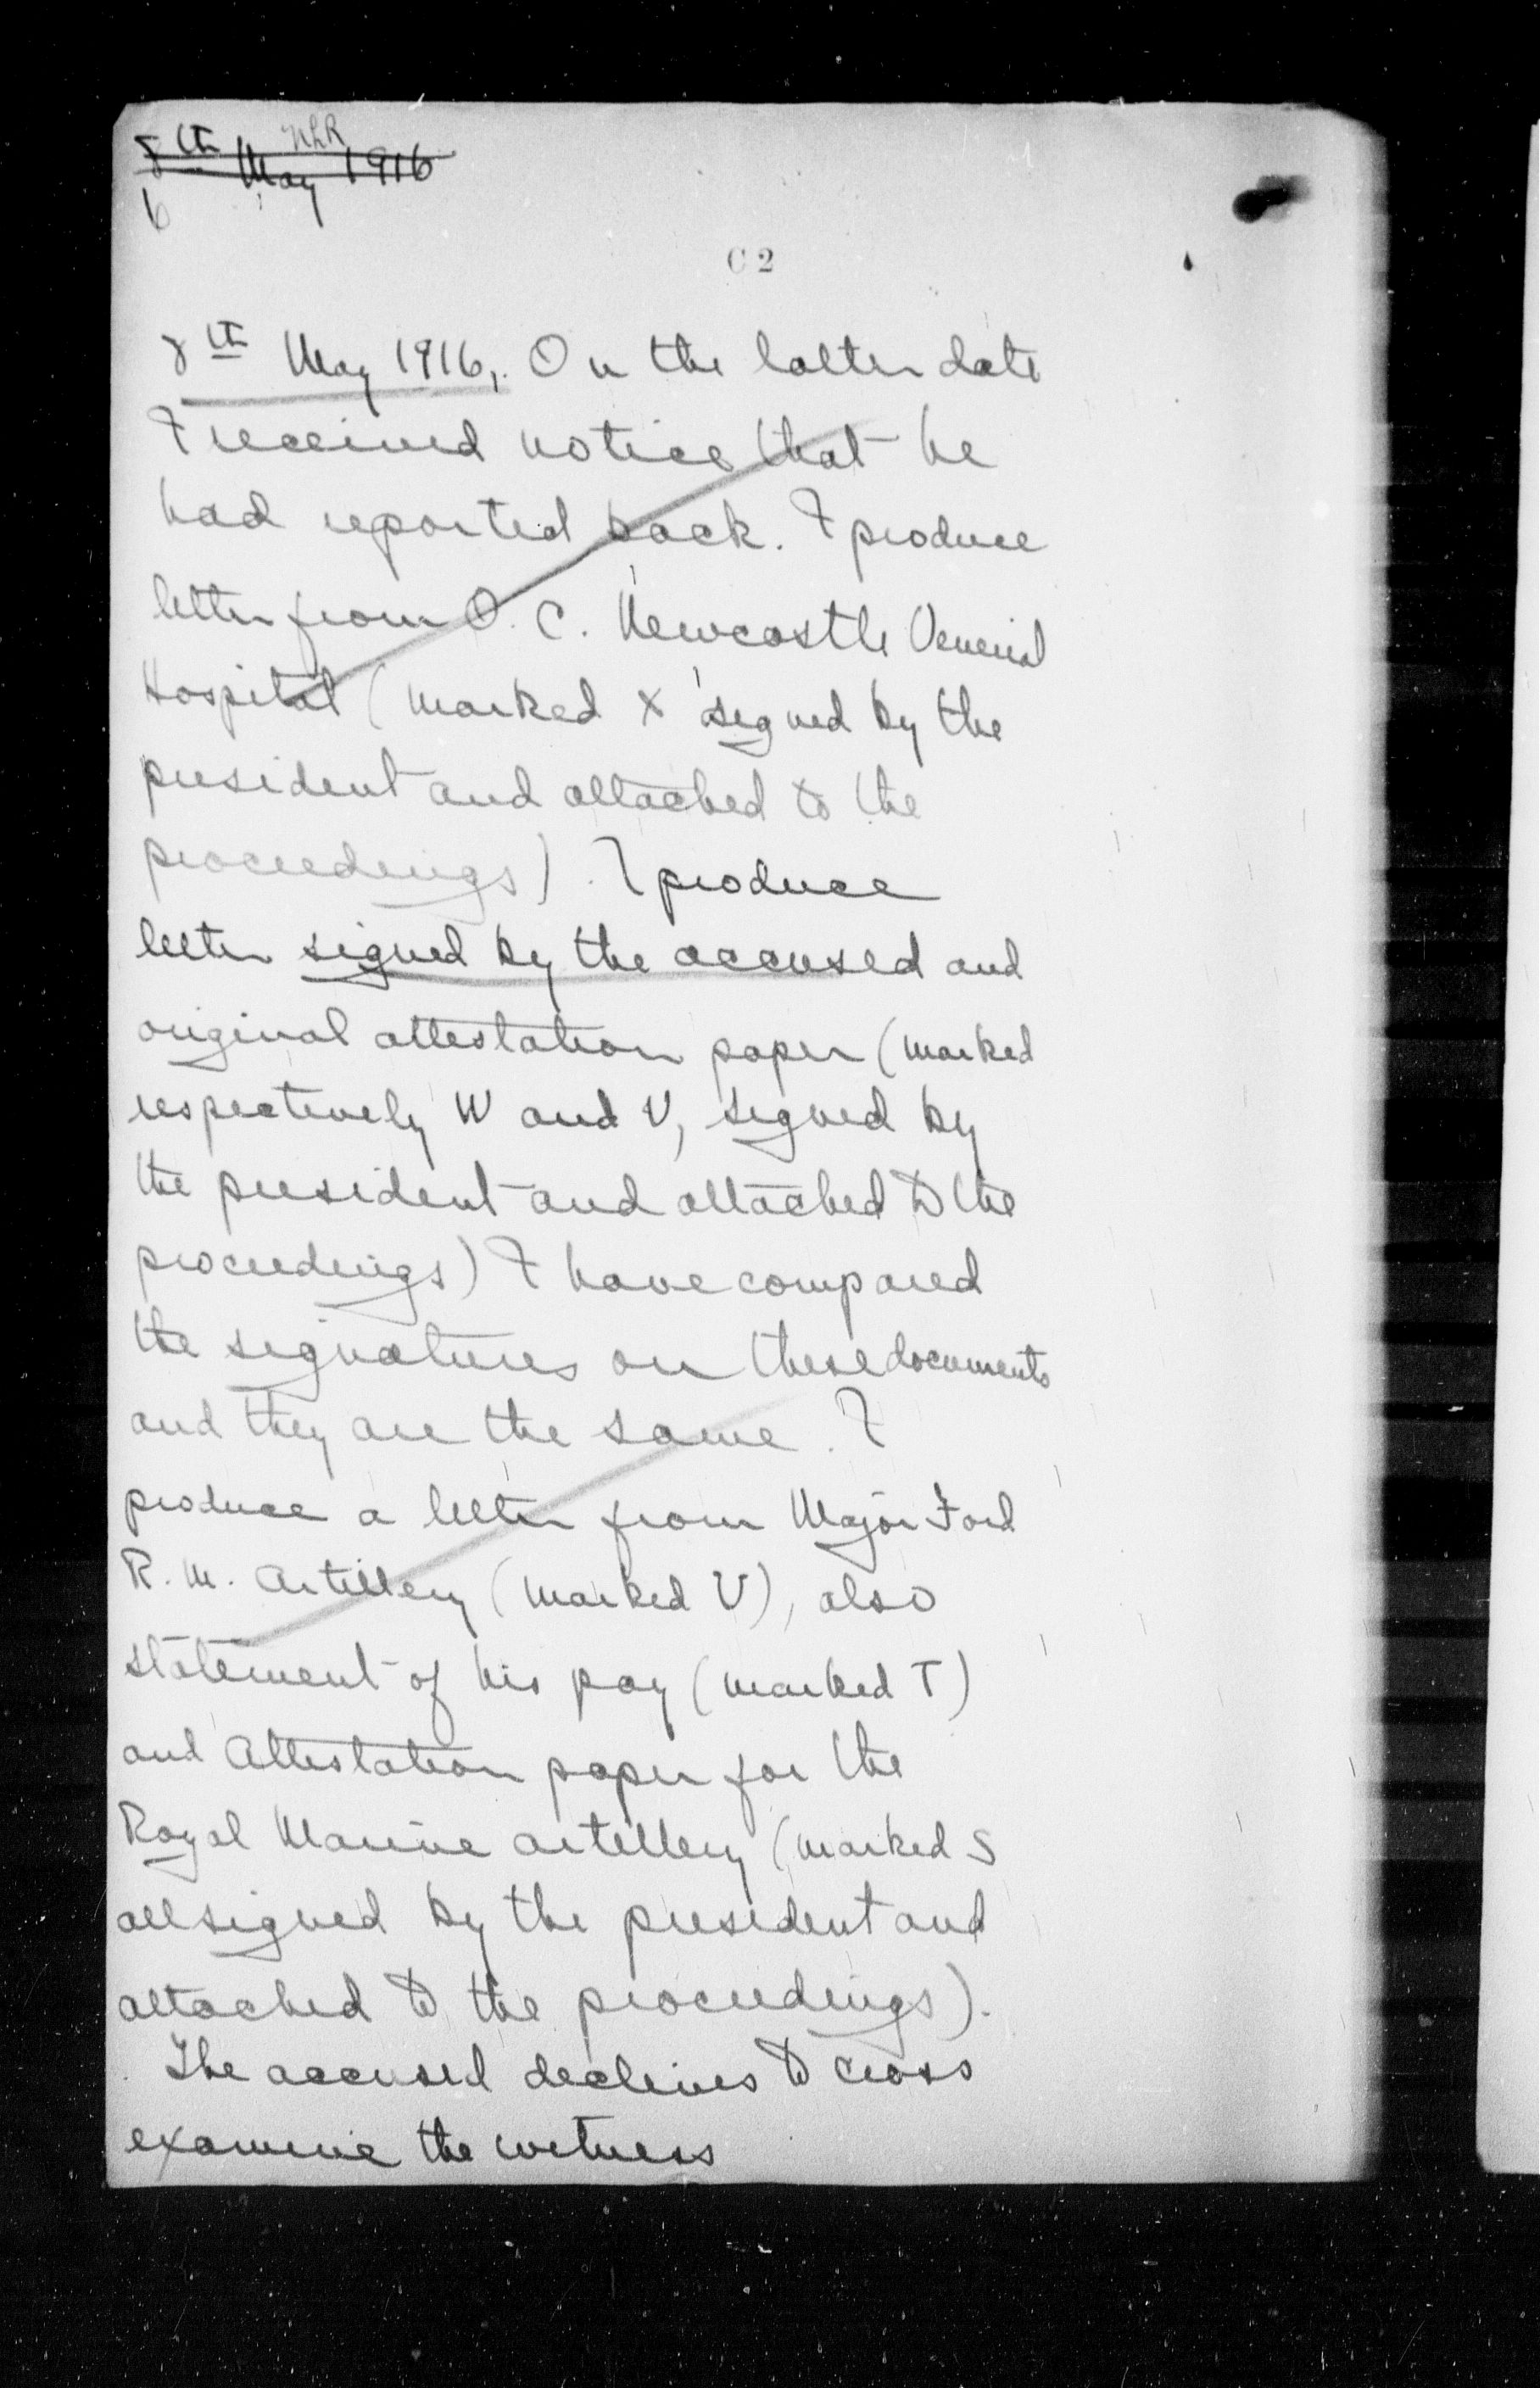 8th May 1916
NLR
6
C 2
8th May 1916, On the latter date
I received notice that he
had reported back. I produce
letter from O. C. Newcastle Venerial
Hospital (marked X signed by the
president and attached to the
proceedings). I produce
letter signed by the accused and
original attestation paper (marked
respectively W and V, signed by
the president and attached to the
proceedings) I have compared
the signatures on these documents
and they are the same. I
produce a letter from Major Ford
R. M. Artillery (marked U), also
statement of his pay (marked T)
and Attestation paper for the
Royal Marine artillery (marked S
all signed by the president and
attached to the proceedings).
The accused declines to cross
examine the witness